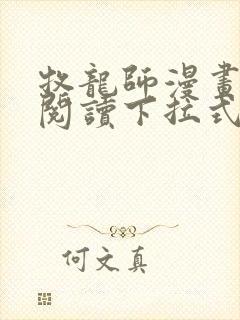 牧龍師漫畫
閱讀下拉式
何文真